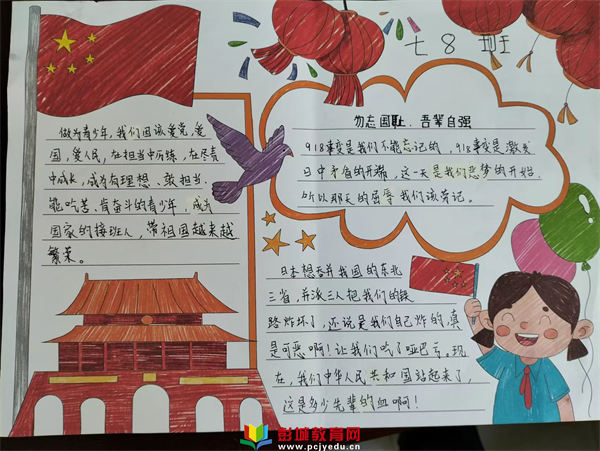 七8班
做为青少年,我们因该爱党,爱
国,爱人民,在担当中历练,在尽责
中成长,成为有理想、敢担当、
能吃苦、肯奋斗的青少年,成为
国家的接班人,带祖国越来越
繁荣。
勿忘国耻、吾辈自强
918事变是我们不能忘记的,918事变是激发
日中矛盾的开端,这一天是我们恶梦的开始,
所以那天的屈辱我们该劳记。
日本想吞并我国的东北
三省,并派三人把我们的铁
路炸坏了,还说是我们自己炸的,真
是可恶啊!让我们吃了哑巴亏。现
在,我们中华人民共和国站起来了,
这是多少先辈的血啊!
彭城教育网
www.pcjyedu.cn